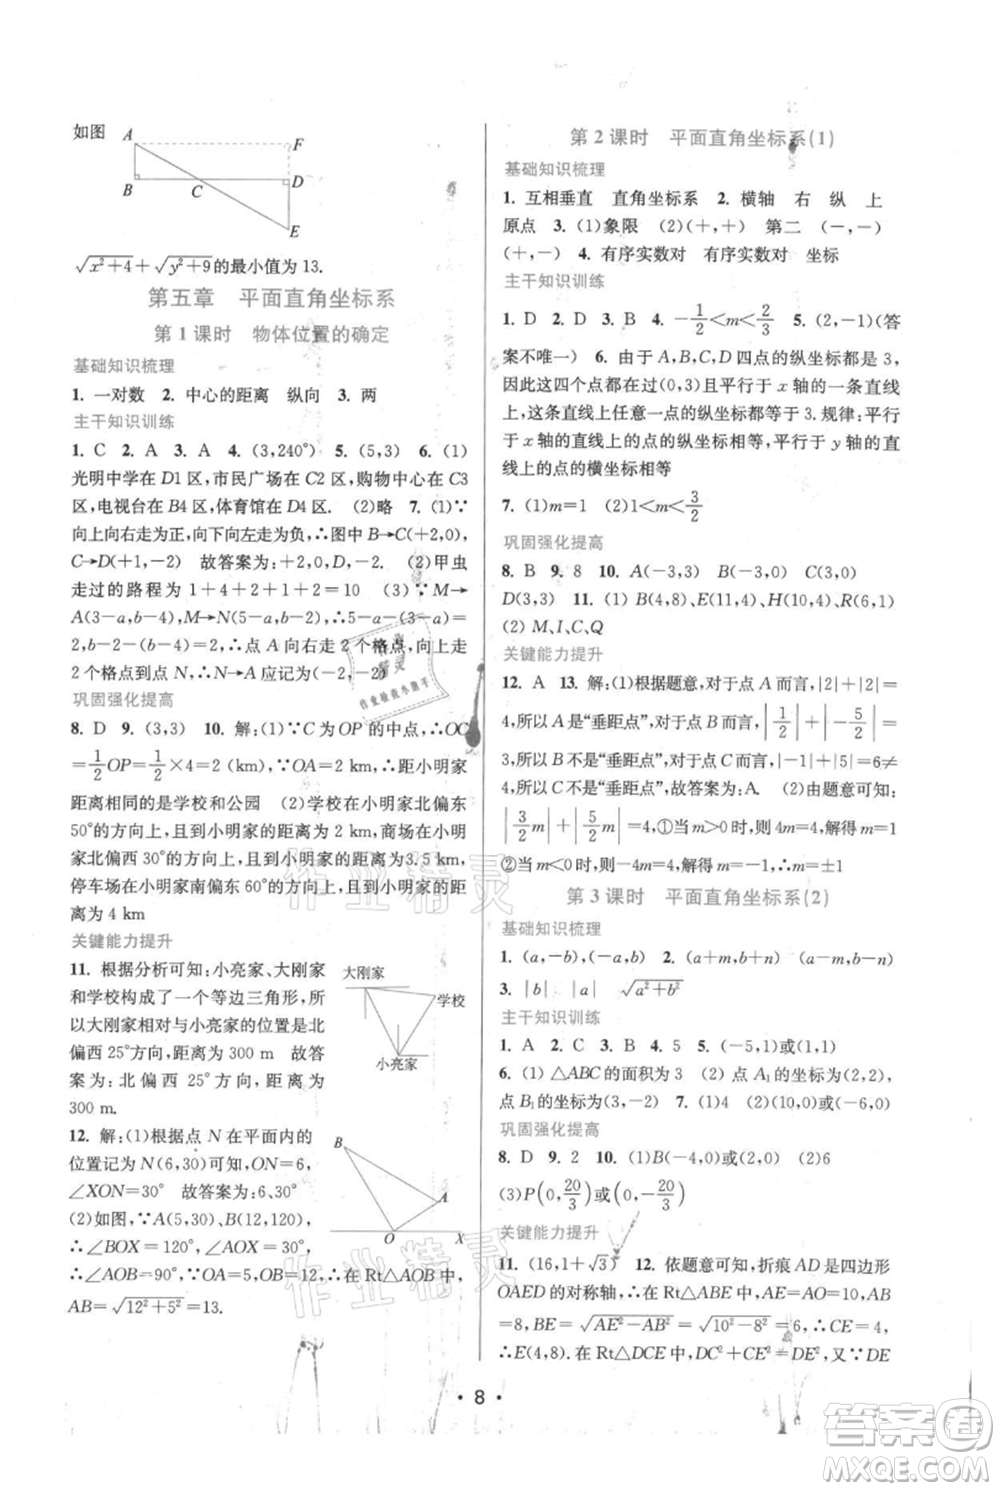 如图
A
F
B
C
D
E
√x²+4+√y²+9的最小值为13.
第五章 平面直角坐标系
第1课时 物体位置的确定
基础知识梳理
1. 一对数 2. 中心的距离 纵向 3. 两
主干知识训练
1. C 2. A 3. A 4. (3,240°) 5. (5,3) 6. (1)
光明中学在D1区,市民广场在C2区,购物中心在C3
区,电视台在B4区,体育馆在D4区. (2)略 7. (1)∵
向上向右走为正,向下向左走为负,∴图中A→C(+2,0),
C→D(+1,-2) 故答案为:A,D(+2,0). (2)甲虫
走过的路程为1+4+2+1+2=10 (3)∵M→
A(3-a,b-4),M→N(5-a,b-2),∴5-a-(3-a)=
2,b-2-(b-4)=2,∴点A向右走2个格点,向上走
2个格点到点N,∴N→A应记为(-2,-2)
巩固强化提高
8. D 9. (3,3) 10. 解:(1)∵C为OP的中点,∴OC
=1/2OP=1/2×4=2 (km),∴距小明家
距离相等的是学校和公园 (2)学校在小明家北偏东
50°的方向上,且到小明家的距离为2 km,商场在小明
家北偏西30°的方向上,且到小明家的距离为3.5 km,
停车场在小明家南偏东60°的方向上,且到小明家的距
离为4 km
关键能力提升
11. 根据分析可知:小亮家、大刚家
和学校构成了一个等边三角形,所
以大刚家相对与小亮家的位置是北
偏西25°方向,距离为300 m 故答
案为:北偏西25°方向,距离为
300 m.
大刚家
学校
小亮家
12. 解:(1)根据点N在平面内的
位置记为N(6,30)可知,ON=6,
∠XON=30° 故答案为:6,30°
(2)如图,∵A(5,30)、B(12,120),
∴∠BOX=120°,∠AOX=30°,
∴∠AOB=90°,∴在Rt△AOB中,
AB=√12²+5²=13.
B
A
O
X
第2课时 平面直角坐标系(1)
基础知识梳理
1. 互相垂直 直角坐标系 2. 横轴 右 纵 上
原点 3. (1)象限 (2)(+,+) 第二 (-,-)
(+,-) 4. 有序实数对 有序实数对 坐标
主干知识训练
1. D 2. D 3. B 4. -1/2<m<2/3 5. (2,-1)(答
案不唯一) 6. 由于A、B、C、D四点的纵坐标都是3,
因此这四个点都在过点(0,3)且平行于x轴的一条直线
上,这条直线上任意一点的纵坐标都等于3.规律:平行
于x轴的直线上的点的纵坐标相等,平行于y轴的直
线上的点的横坐标相等
7. (1)m=1 (2)1<m<3/2
巩固强化提高
8. B 9. 8 10. A(-3,3) B(-3,-3) C(3,0)
D(3,3) 11. (1) B(4,8)、E(11,4)、H(10,4)、R(6,1)
(2) M、I、C、Q
关键能力提升
12. A 13. 解:(1)根据题意,对于点A而言,|2|+|2|=
4,所以A是“垂距点”,对于点B而言,|1/2|+|-5/2|=
3,所以B不是“垂距点”,对于点C而言,|-1|+|5|=6≠
4,所以C不是“垂距点”,故答案为:A. (2)由题意可知:
|3/2m|+|5/2m|=4,①当m>0时,则4m=4,解得m=1;
②当m<0时,则-4m=4,解得m=-1;∴m=±1
第3课时 平面直角坐标系(2)
基础知识梳理
1. (a,-b) (-a,b) (-a,-b) 2. (a+m,b+n) (a-m,b-n)
3. |b| |a| √a²+b²
主干知识训练
1. A 2. D 3. B 4. 5 5. (-5,1)或(1,1)
6. (1) △ABC的面积为3 (2)点A₁的坐标为(2,2),
点B₁的坐标为(3,-2) 7. (1)4 (2)(2,0)或(-6,0)
巩固强化提高
8. D 9. 2 10. (1)B(-4,0)或(2,0) (2)6
(3)P(0,20/3)或(0,-20/3)
关键能力提升
11. (16,1+√3) 12. 依题意可知,折痕AD是四边形
OAED的对称轴,∴在Rt△ABE中,AE=AO=10,AB
=8,BE=√AE²-AB²=√10²-8²=6,∴CE=4,
∴E(4,8).在Rt△DCE中,DC²+CE²=DE²,又∵DE
• 8 •
作业精灵
作业精灵
作业检查小能手
作业精灵
答案圈
MXQE.COM